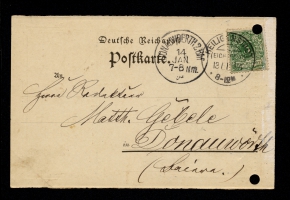 Deutsche Reichspost
Postkarte.
14
JAN
7-8 Nm.
8-9 Nm
An
Herrn Redakteur
Matth. Gebele
in Donauwörth
(Baiern).